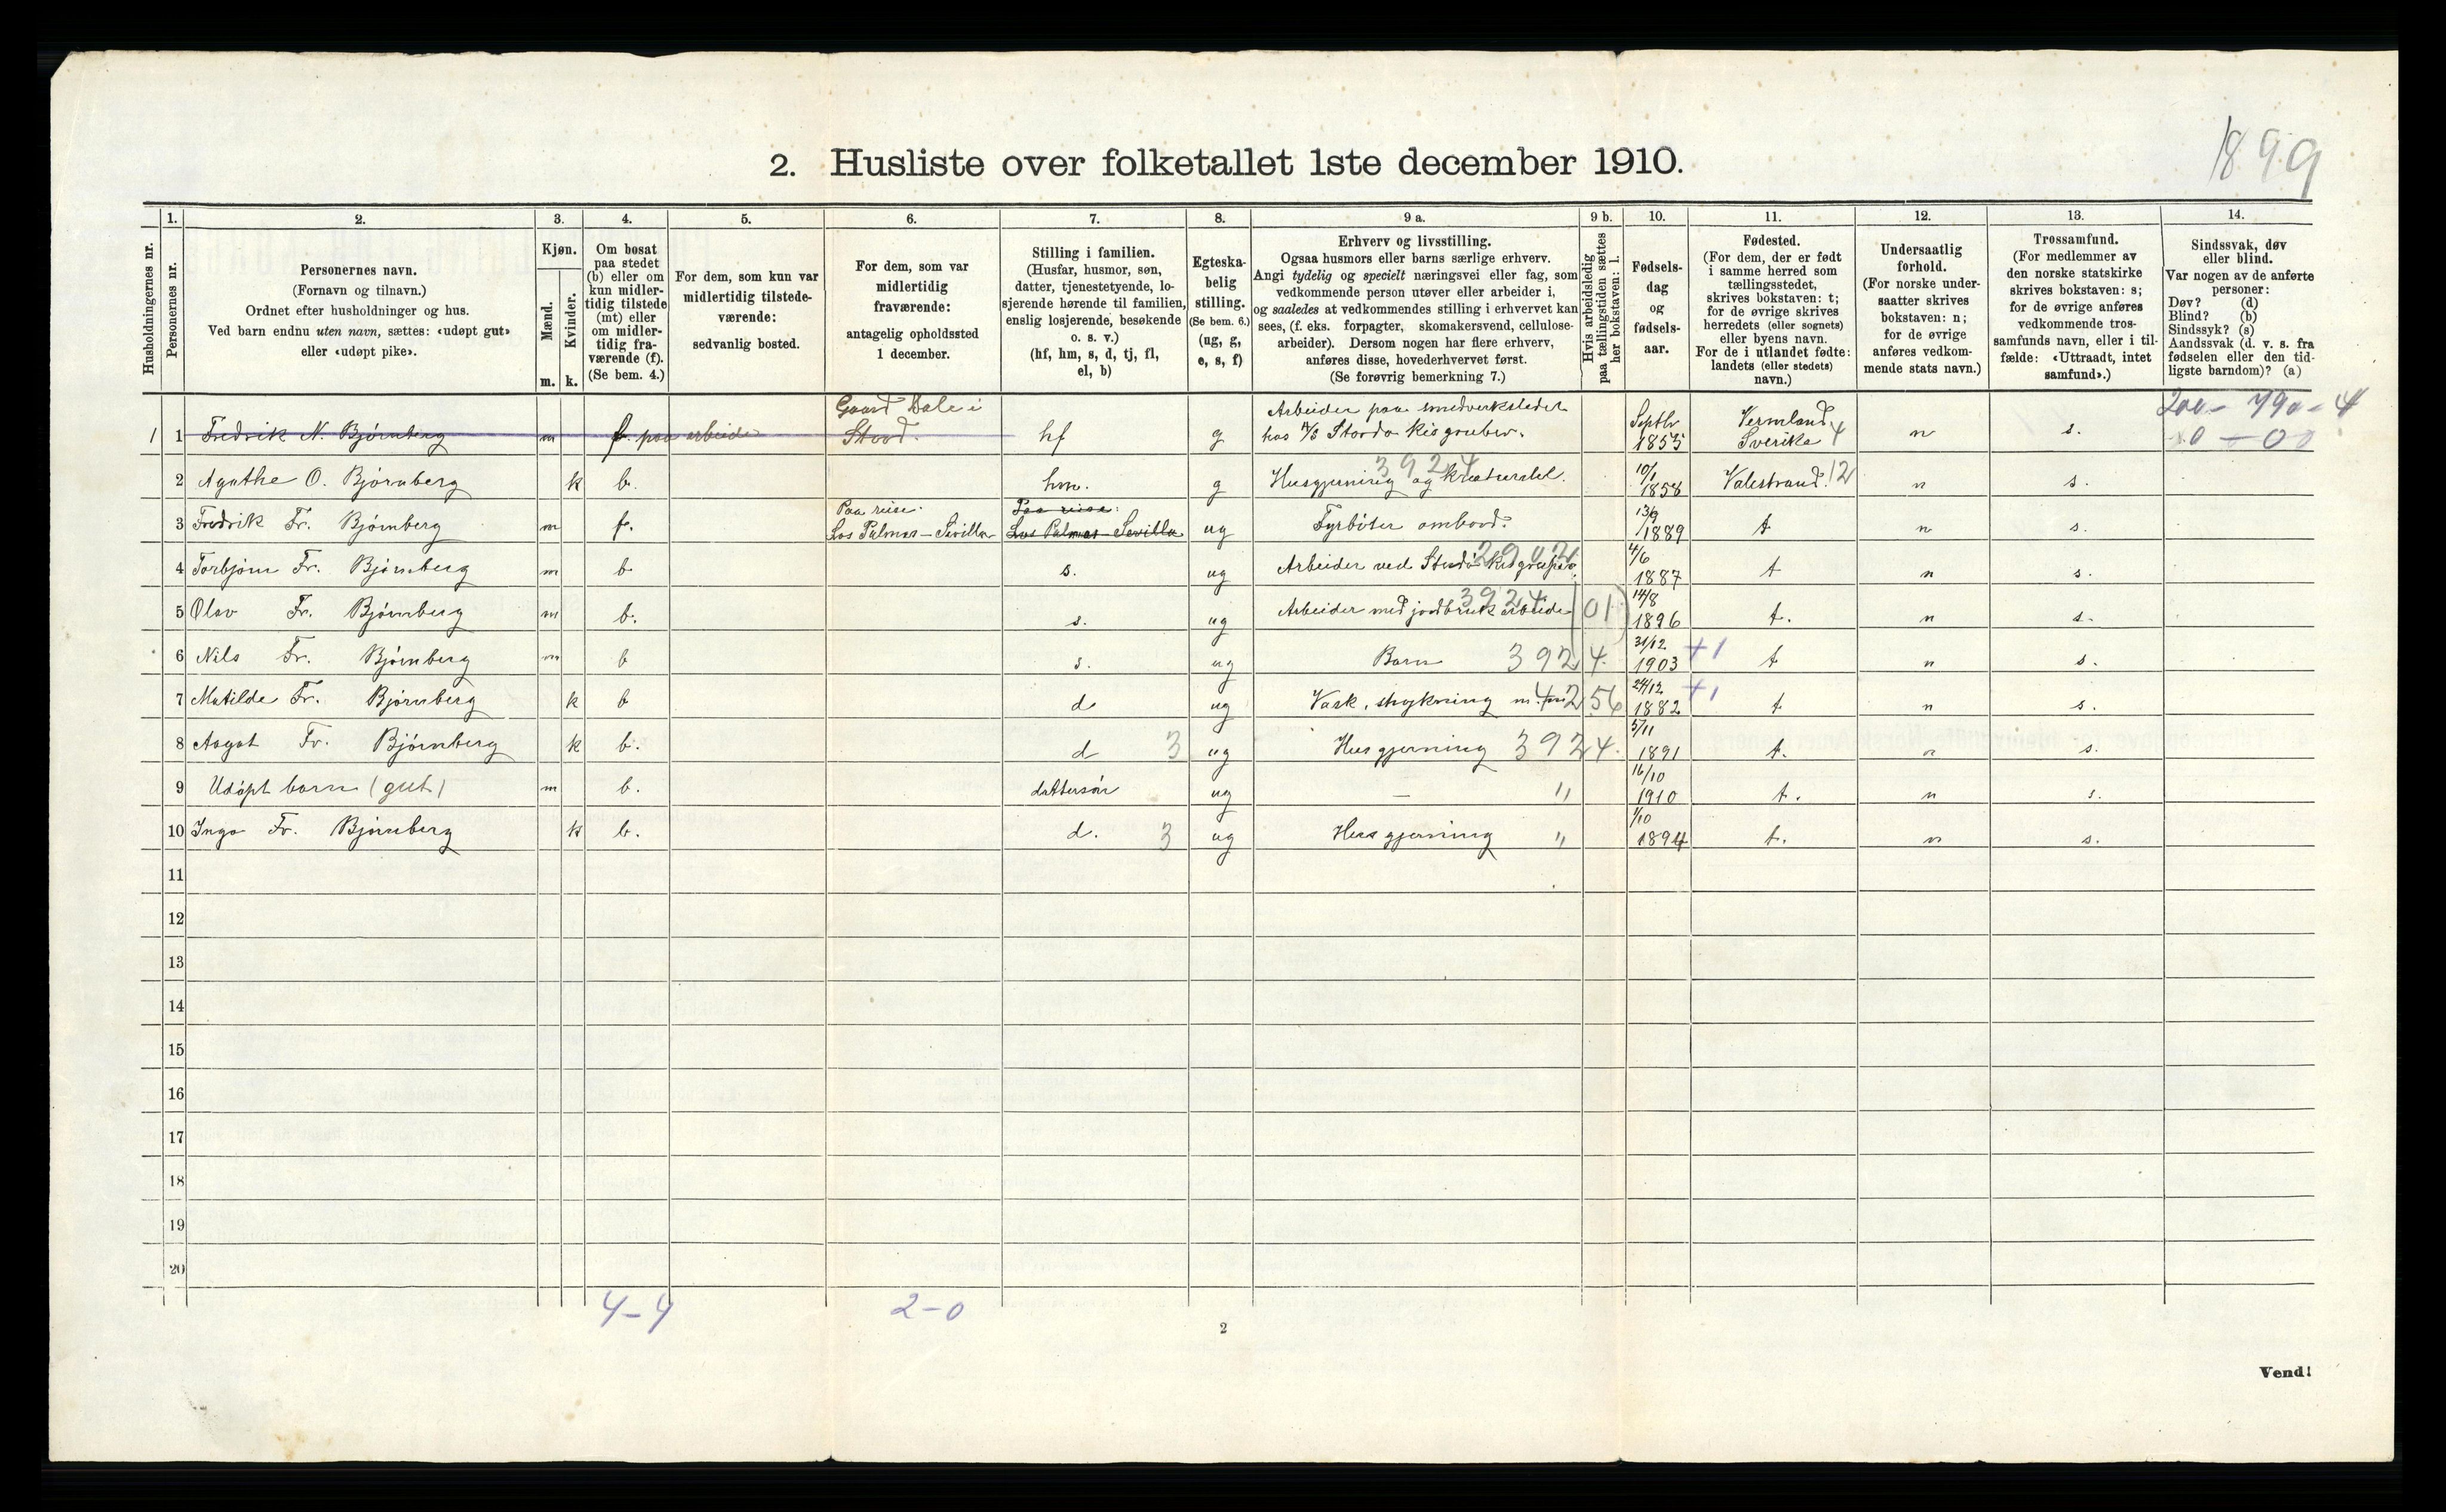 1899
2. Husliste over folketallet 1ste december 1910.
1. 2. 3. 4. 5. 6. 7. 8. 9 a. 9 b. 10. 11. 12. 13. 14.
Husholdningernes nr.
Personernes nr.
Personernes navn.
(Fornavn og tilnavn.)
Ordnet efter husholdninger og hus.
Ved barn endnu uten navn, sættes: «udøpt gut»
eller «udøpt pike».
Kjøn.
Mænd.
Kvinder.
m. k.
Om bosat
paa stedet
(b) eller om
kun midler-
tidig tilstede
(mt) eller
om midler-
tidig fra-
værende (f).
(Se bem. 4.)
For dem, som kun var
midlertidig tilstede-
værende:
sedvanlig bosted.
For dem, som var
midlertidig
fraværende:
antagelig opholdssted
1 december.
Stilling i familien.
(Husfar, husmor, søn,
datter, tjenestetyende, lo-
sjerende hørende til familien,
enslig losjerende, besøkende
o. s. v.)
(hf, hm, s, d, tj, fl,
el, b)
Egteska-
belig
stilling.
(Se bem. 6.)
(ug, g,
e, s, f)
Erhverv og livsstilling.
Ogsaa husmors eller barns særlige erhverv.
Angi tydelig og specielt næringsvei eller fag, som
vedkommende person utøver eller arbeider i,
og saaledes at vedkommendes stilling i erhvervet kan
sees, (f. eks. forpagter, skomakersvend, cellulose-
arbeider). Dersom nogen har flere erhverv,
anføres disse, hovederhvervet først.
(Se forøvrig bemerkning 7.)
Hvis arbeidsledig
paa tællingstiden sættes
her bokstaven: l.
Fødsels-
dag
og
fødsels-
aar.
Fødested.
(For dem, der er født
i samme herred som
tællingsstedet,
skrives bokstaven: t;
for de øvrige skrives
herredets (eller sognets)
eller byens navn.
For de i utlandet fødte:
landets (eller stedets)
navn.)
Undersaatlig
forhold.
(For norske under-
saatter skrives
bokstaven: n;
for de øvrige
anføres vedkom-
mende stats navn.)
Trossamfund.
(For medlemmer av
den norske statskirke
skrives bokstaven: s;
for de øvrige anføres
vedkommende tros-
samfunds navn, eller i til-
fælde: «Uttraadt, intet
samfund».)
Sindssvak, døv
eller blind.
Var nogen av de anførte
personer:
Døv? (d)
Blind? (b)
Sindssyk? (s)
Aandssvak (d. v. s. fra
fødselen eller den tid-
ligste barndom)? (a)
1 1 Fredrik N. Bjørnberg m f. paa arbeide Gaard Dale i Stord. hf g Arbeider paa smedverksteder hos A/S Stordø Kisgruber. Septbr 1855 Vermland Sverike 4 n s.
2 Agathe O. Bjørnberg k b. hm. g Husgjerning og kreaturstel. 3924 10/1 1858 Valestrand. 12 n s.
3 Fredrik Fr. Bjørnberg m f. Paa reise. Las Palmas - Sevilla Paa reise. Las Palmas - Sevilla ug Fyrbøter ombord. 13/9 1889 t n s.
4 Torbjørn Fr. Bjørnberg m b s. ug Arbeider ved Stordø Kisgruber. 4/6 1887 t n s.
5 Olav Fr. Bjørnberg m b. s. ug Arbeider med jordbruksarbeide 3924 (01) 14/8 1896 t. n s.
6 Nils Fr. Bjørnberg m b s. ug Barn 3924. 31/12 1903 +1 t n s.
7 Matilde Fr. Bjørnberg k b d ug Vask, strykning m. m. 4256 24/12 1882 +1 t n s.
8 Aagot Fr. Bjørnberg k b. d 3 ug Husgjerning 3924. 5/11 1891 t. n s.
9 Udøpt barn (gut) m b. dattersøn ug — " 16/10 1910 t. n s.
10 Inga Fr. Bjørnberg k b. d. 3 ug Husgjerning " 1/10 1894 t. n s.
11
12
13
14
15
16
17
18
19
20
4-4 2-0
2
Vend!